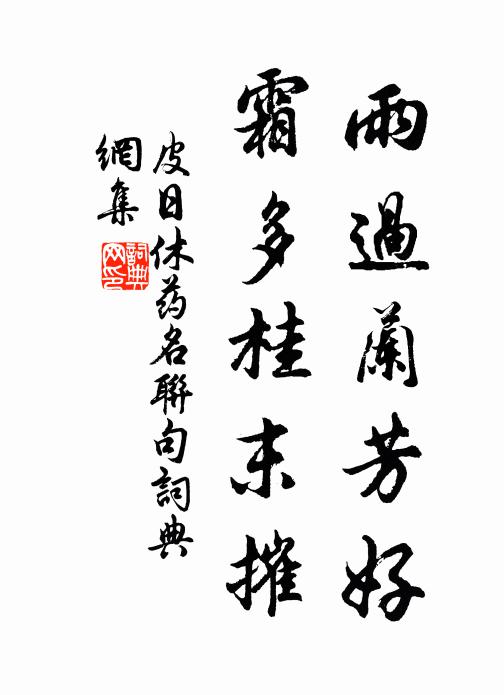 雨過蘭芳好
霜多桂末摧
皮日休药名聯句詞典
網集
詞典網印